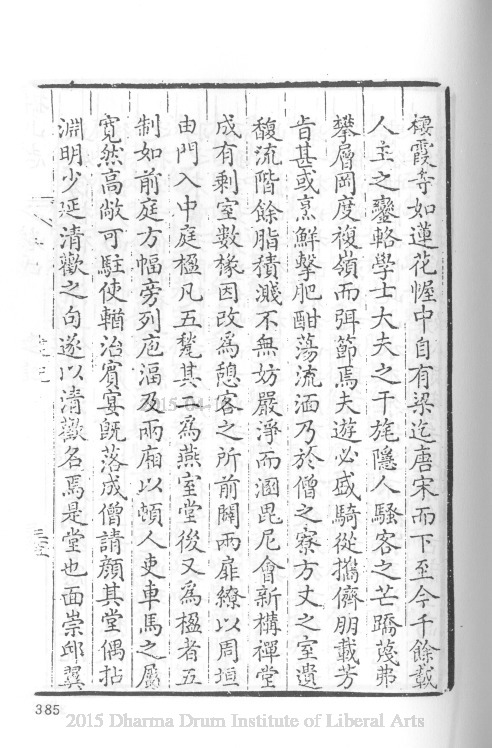 棲霞寺如蓮花幄中自有梁迄唐宋而下至今千餘載
人主之鑾輅學士大夫之干旄隱人騷客之芒蹻莫弗
攀層岡度複嶺而弭節焉夫遊必盛騎從攜儕朋載芳
旨甚或烹鮮擊肥酣蕩流湎乃於僧之寮方丈之室遺
馥流階餘脂積濺不無妨嚴淨而溷毘尼會新構禪堂
成有剩室數椽因改為憩客之所前闢兩扉繚以周垣
由門入中庭楹凡五甃其 為燕室堂後又為楹者五
制如前庭方幅旁列庖湢及兩廂以頓人吏車馬之屬
寬然高敞可駐使輶治賓宴既落成僧請顏其堂偶拈
淵明少延清歡之句遂以清歡名焉是堂也面崇邱翼
385
2015 Dharma Drum Institute of Liberal Arts